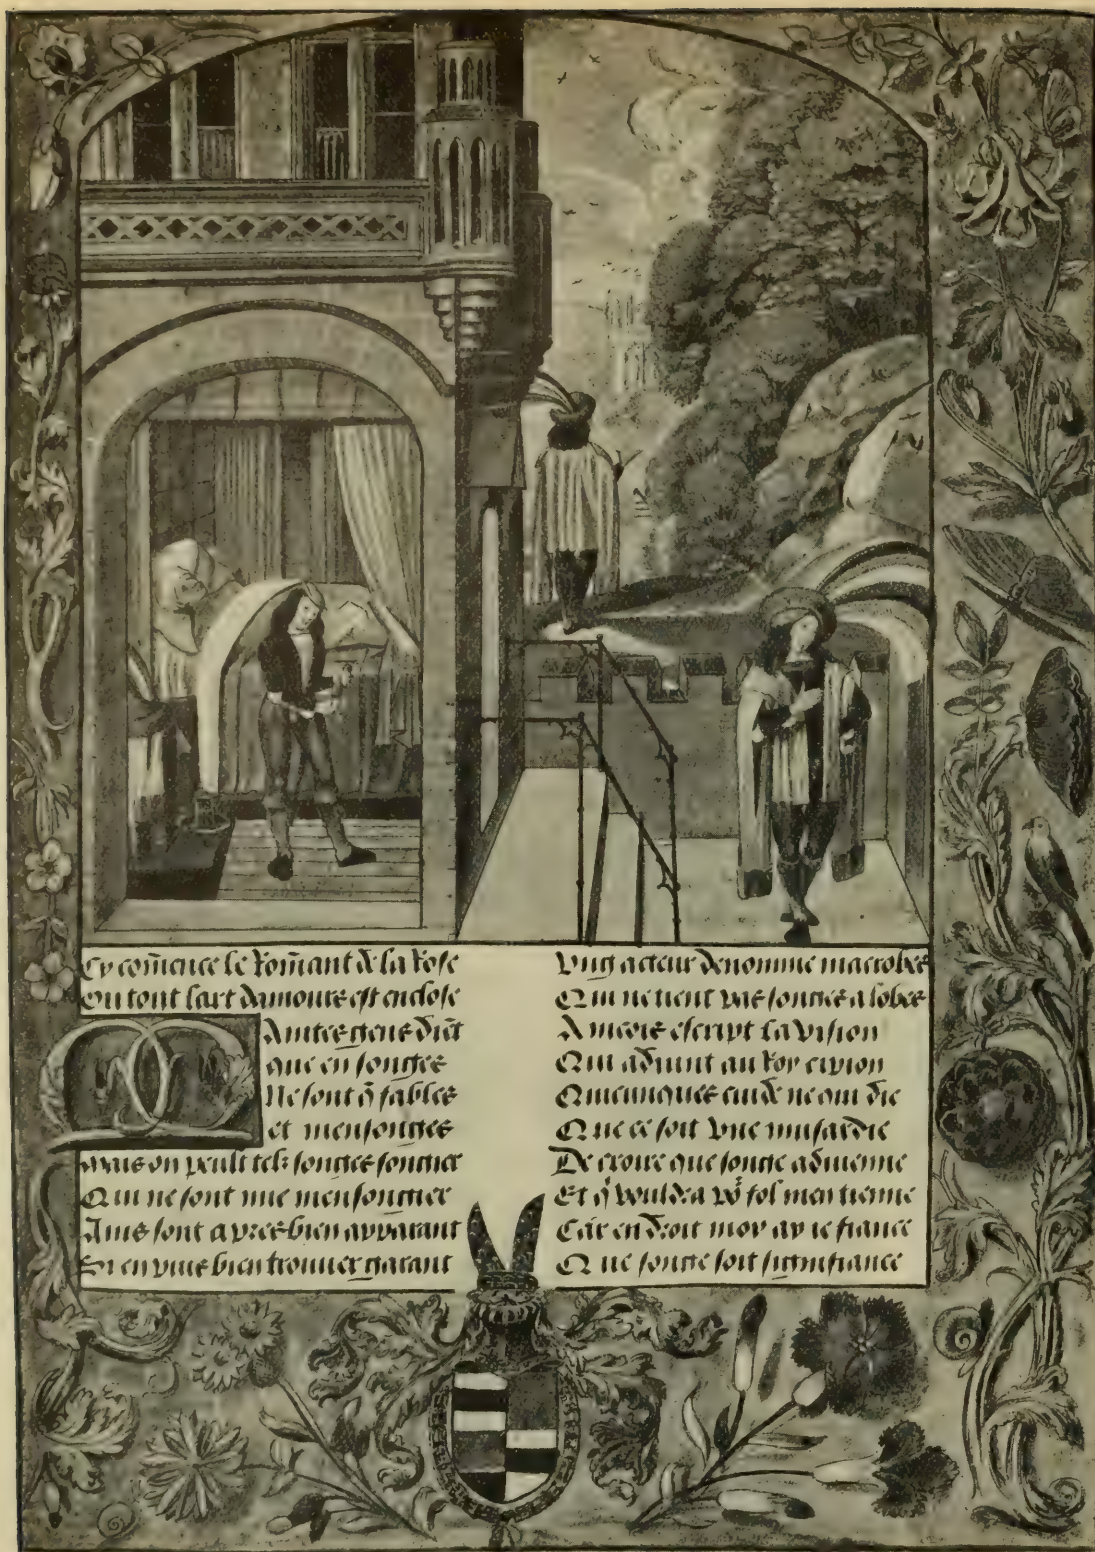 Cy cõmence le Rom̃ant de la Rose
Ou tout lart damours est enclose
Maintes gens dièt
que en songes
Ne sont q̃ fables
et mensonges
Mais on peult telz songes songier
Qui ne sont mie mensongier
Ains sont apres bien apparant
Si en puis bien trouuer garant
Vng acteur denomme macrobes
Qui ne tient pas songes a lobes
Ancois escript la vision
Qui aduint au roy cipion
Quicunques cuide ne qui die
Que ce soit vne musardie
De croire que songe aduienne
Et q̃ vouldra po² fol men tienne
Car en droit moy ay ie fiance
Que songe soit signifiance